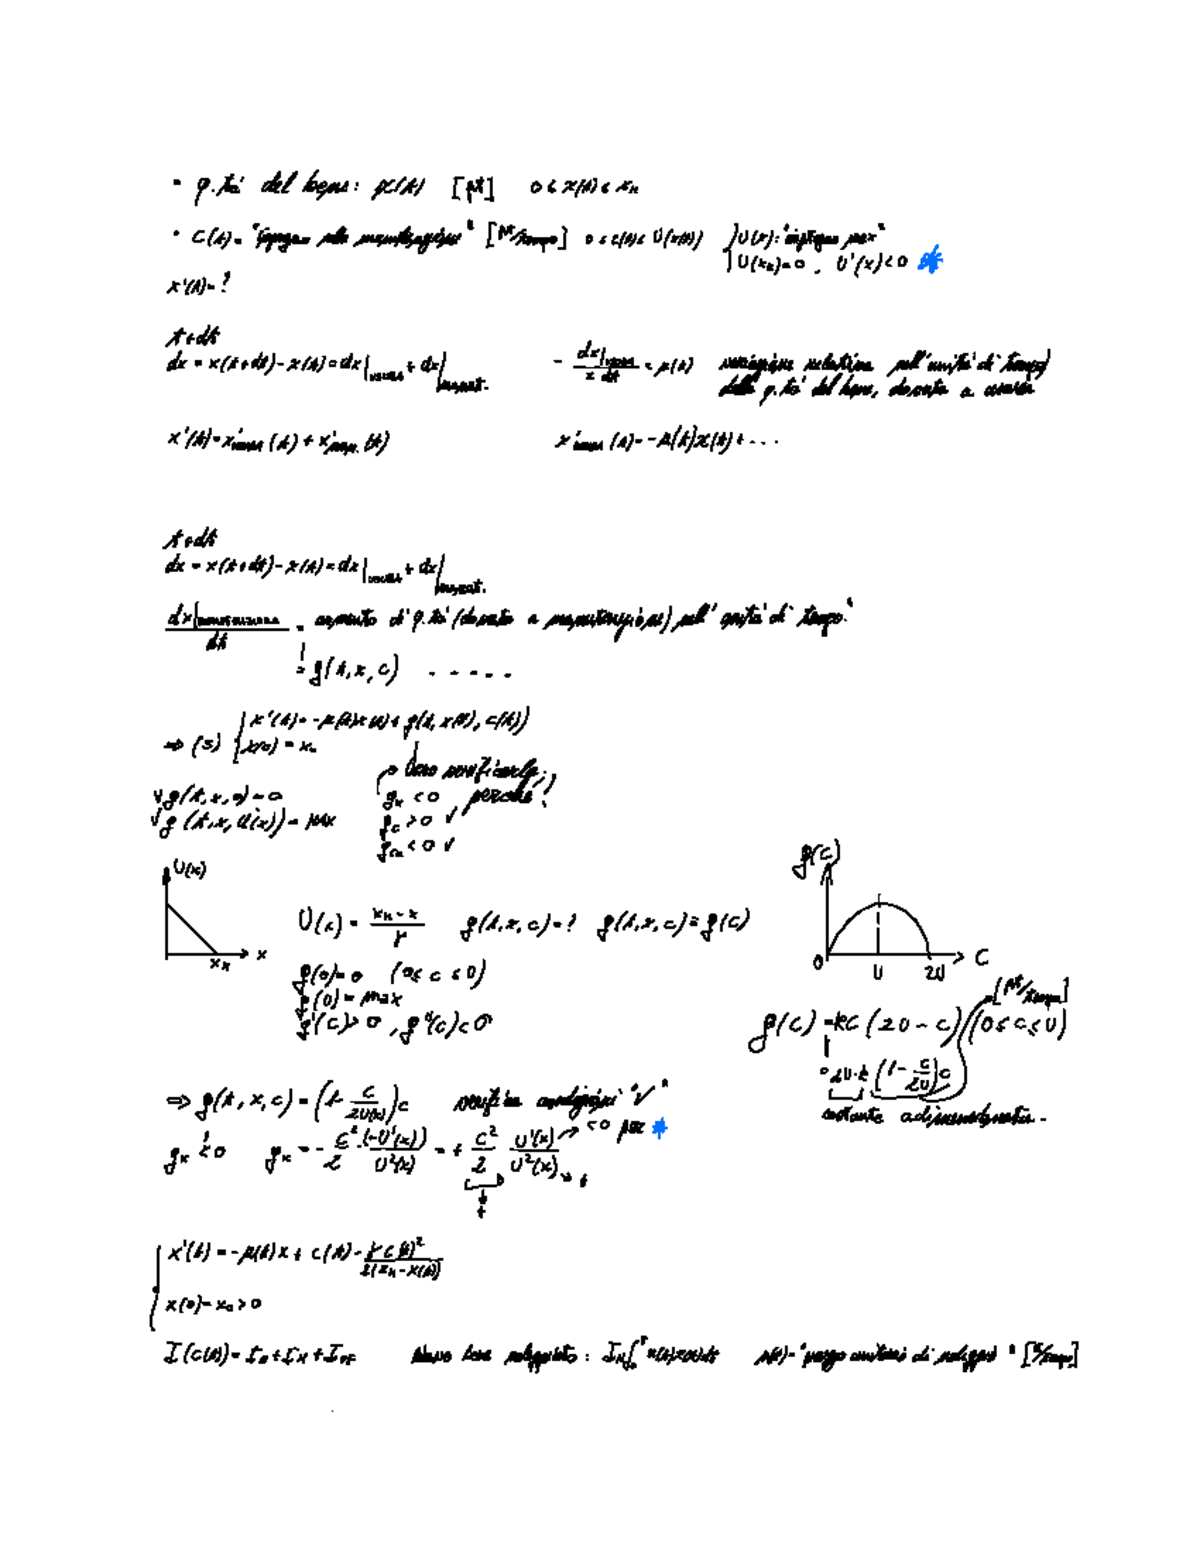 • q.tà del bene: x(t) [pt] 0 ≤ x(t) ≤ x_M
• C(t) = "impegno alla manutenzione" [pt/tempo] 0 ≤ c(t) ≤ U(x(t)) U(x): "impegno max"
U(x_M) = 0 , U'(x) < 0 *
x'(t) = ?
t+dt
dx = x(t+dt) - x(t) = dx|usura + dx|manut.
- dx|usura / x dt = μ(t) variazione relativa nell'unità di tempo
della q.tà del bene, dovuta a usura
x'(t) = x'usura (t) + x'man. (t) x'usura (t) = -μ(t)x(t) + ...
t+dt
dx = x(t+dt) - x(t) = dx|usura + dx|manut.
dx|manutenzione / dt = aumento di q.tà (dovuto a manutenzione) nell'unità di tempo"
= g(t, x, c) . . . . .
⇒ (S) { x'(t) = -μ(t)x(t) + g(t, x(t), c(t))
x(0) = x₀
→ Devo verificarle,
√ g(t, x, 0) = 0 g_x < 0 perché?
√ g(t, x, U(x)) = MAX g_c > 0 √
g_cc < 0 √
U(x) x x_M
U(x) = (x_M - x)/γ g(t, x, c) = ? g(t, x, c) ≡ g(c)
g(0) = 0 (0 ≤ c ≤ U)
g(U) = max
g'(c) > 0 , g''(c) < 0
g(c) 0 U 2U C
[pt/tempo]
g(c) = kc(2U - c) (0 ≤ c ≤ U)
= 2U·k (1 - c/2U)c
costante adimensionata -
⇒ g(t, x, c) = (1 - c/2U(x))c verifica condizioni "√"
g_x < 0 g_x = - c²/2 (-U'(x))/U²(x) = + c²/2 U'(x)/U²(x) → <0 per *
+ +
{ x'(t) = -μ(t)x + c(t) - γc(t)²/2(x_M - x(t))
x(0) = x₀ > 0